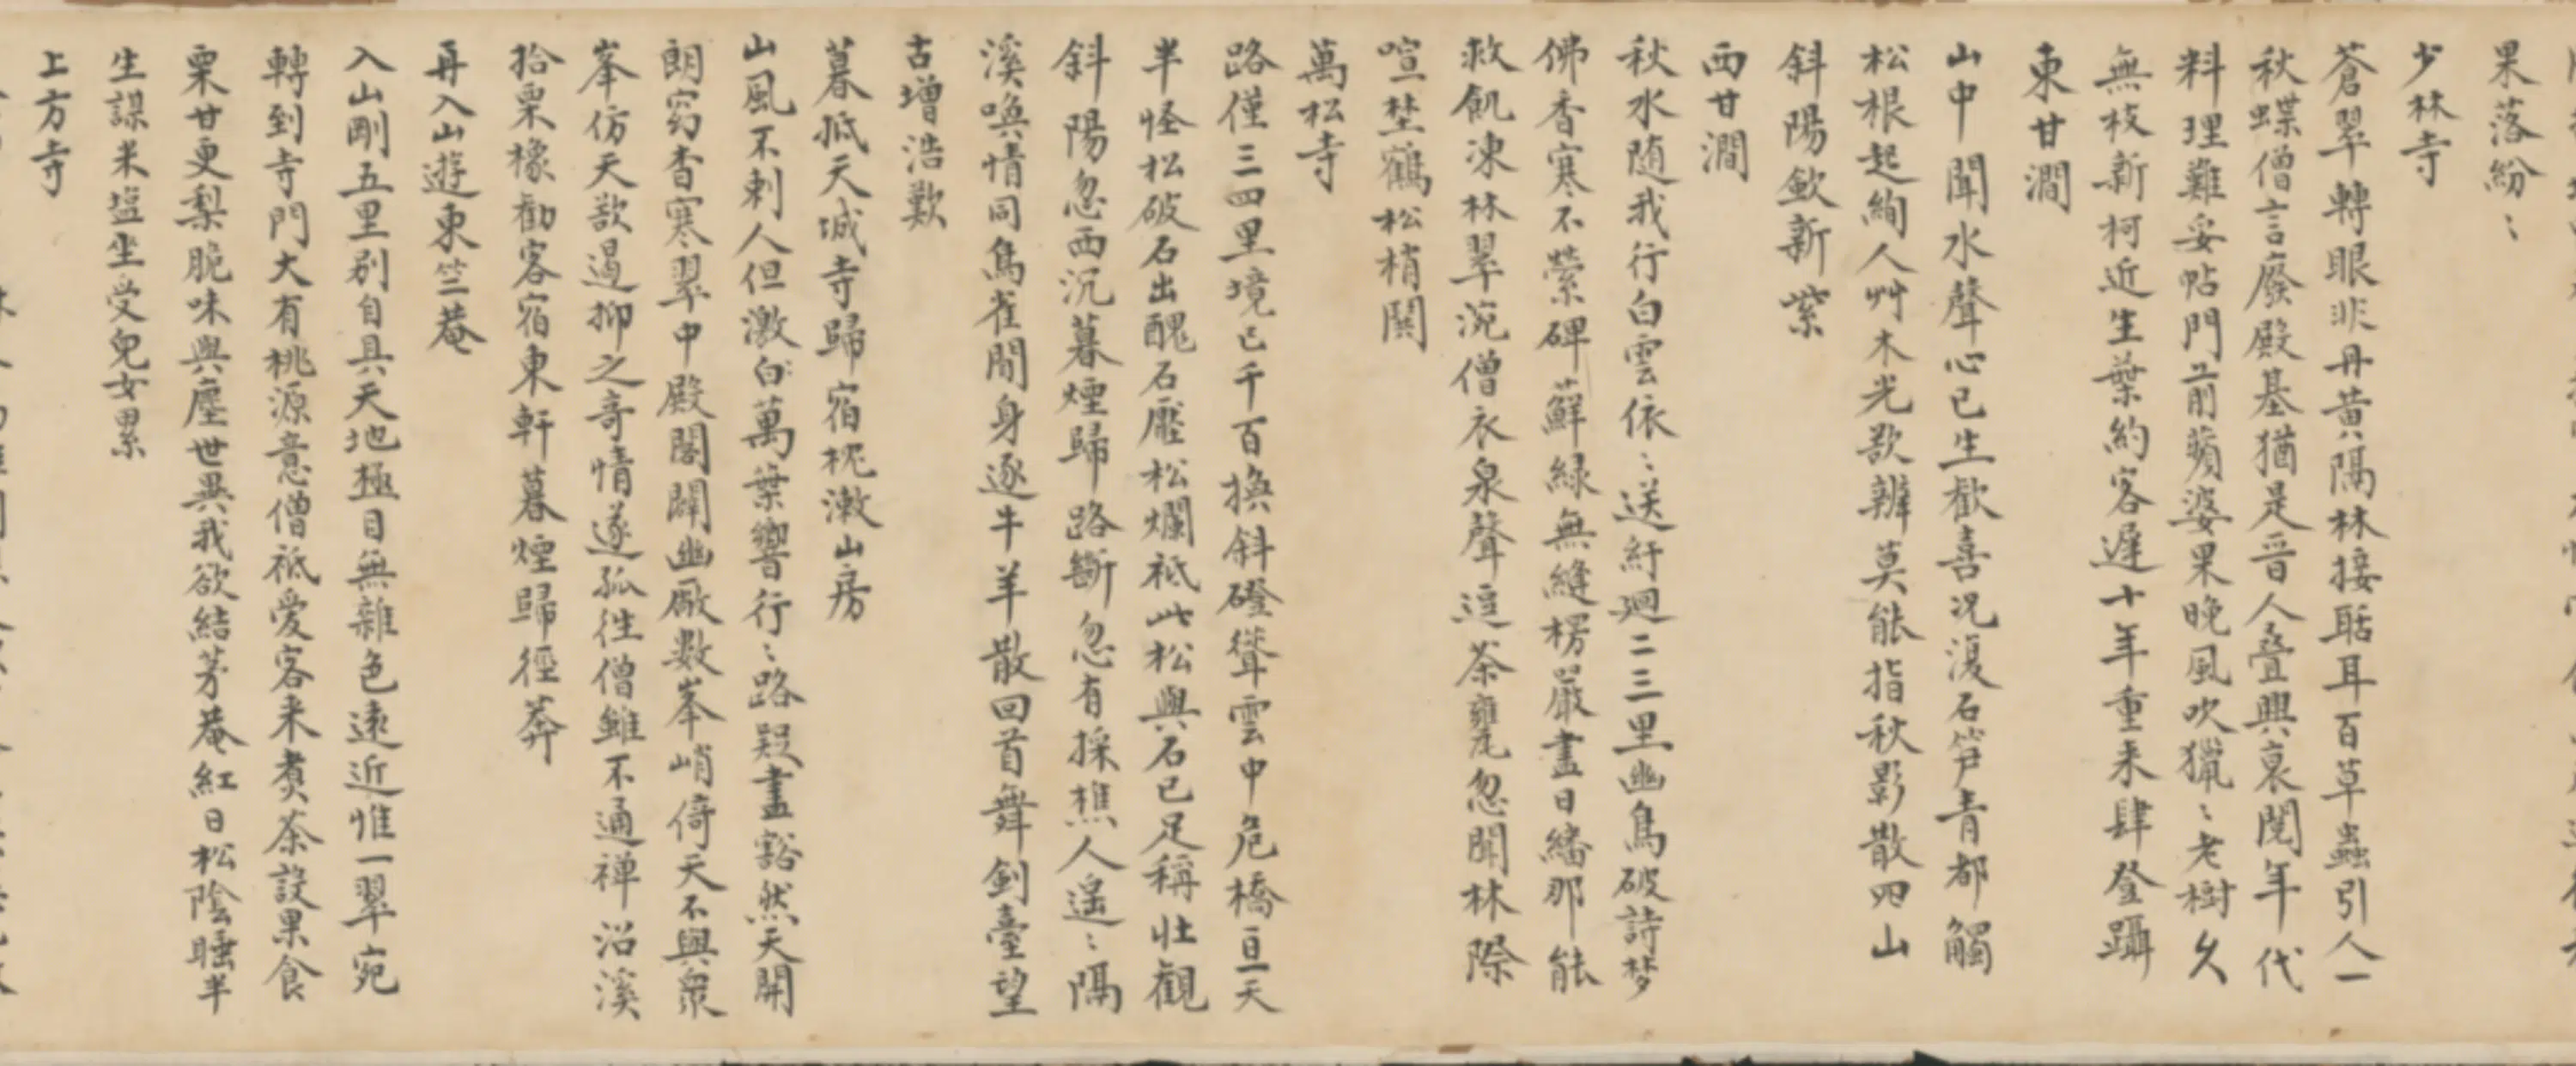 果落紛〻
少林寺
蒼翠轉眼非丹黃隔林接聒耳百草蟲引人一
秋蝶僧言廢殿基猶是晉人疊興衰閱年代
料理難妥帖門前蘋婆果晚風吹獵〻老樹久
無枝新柯近生葉約客遲十年重來肆登躡
東甘澗
山中聞水聲心已生歡喜況復石筍青都觸
松根起絢人艸木光歘辨莫能指秋影散四山
斜陽歛新紫
西甘澗
秋水隨我行白雲依〻送紆廻二三里幽鳥破詩夢
佛香寒不縈碑蘚綠無縫楞嚴盡日繙那能
救飢凍林翠涴僧衣泉聲逗茶甕忽聞林際
喧埜鶴松梢鬨
萬松寺
路僅三四里境已千百換斜磴聳雲中危橋亘天
半怪松破石出醜石壓松爛祗此松與石已足稱壯觀
斜陽忽西沉暮煙歸路斷忽有採樵人遙〻隔
溪喚情同鳥雀閒身逐牛羊散回首舞劍臺望
古增浩歎
暮抵天城寺歸宿枕漱山房
山風不刺人但激白萬葉響行〻路疑盡豁然天開
朗窈杳寒翠中殿閣闢幽厰數峯峭倚天不與衆
峯仿天歘遏抑之奇情遂孤往僧雖不通禪沿溪
拾栗橡勸客宿東軒暮煙歸徑莽
再入山遊東竺菴
入山剛五里別自具天地極目無雜色遠近惟一翠宛
轉到寺門大有桃源意僧祗愛客來煑茶設果食
栗甘更梨脆味與塵世異我欲結茅菴紅日松陰睡半
生謀米塩坐受兒女累
上方寺